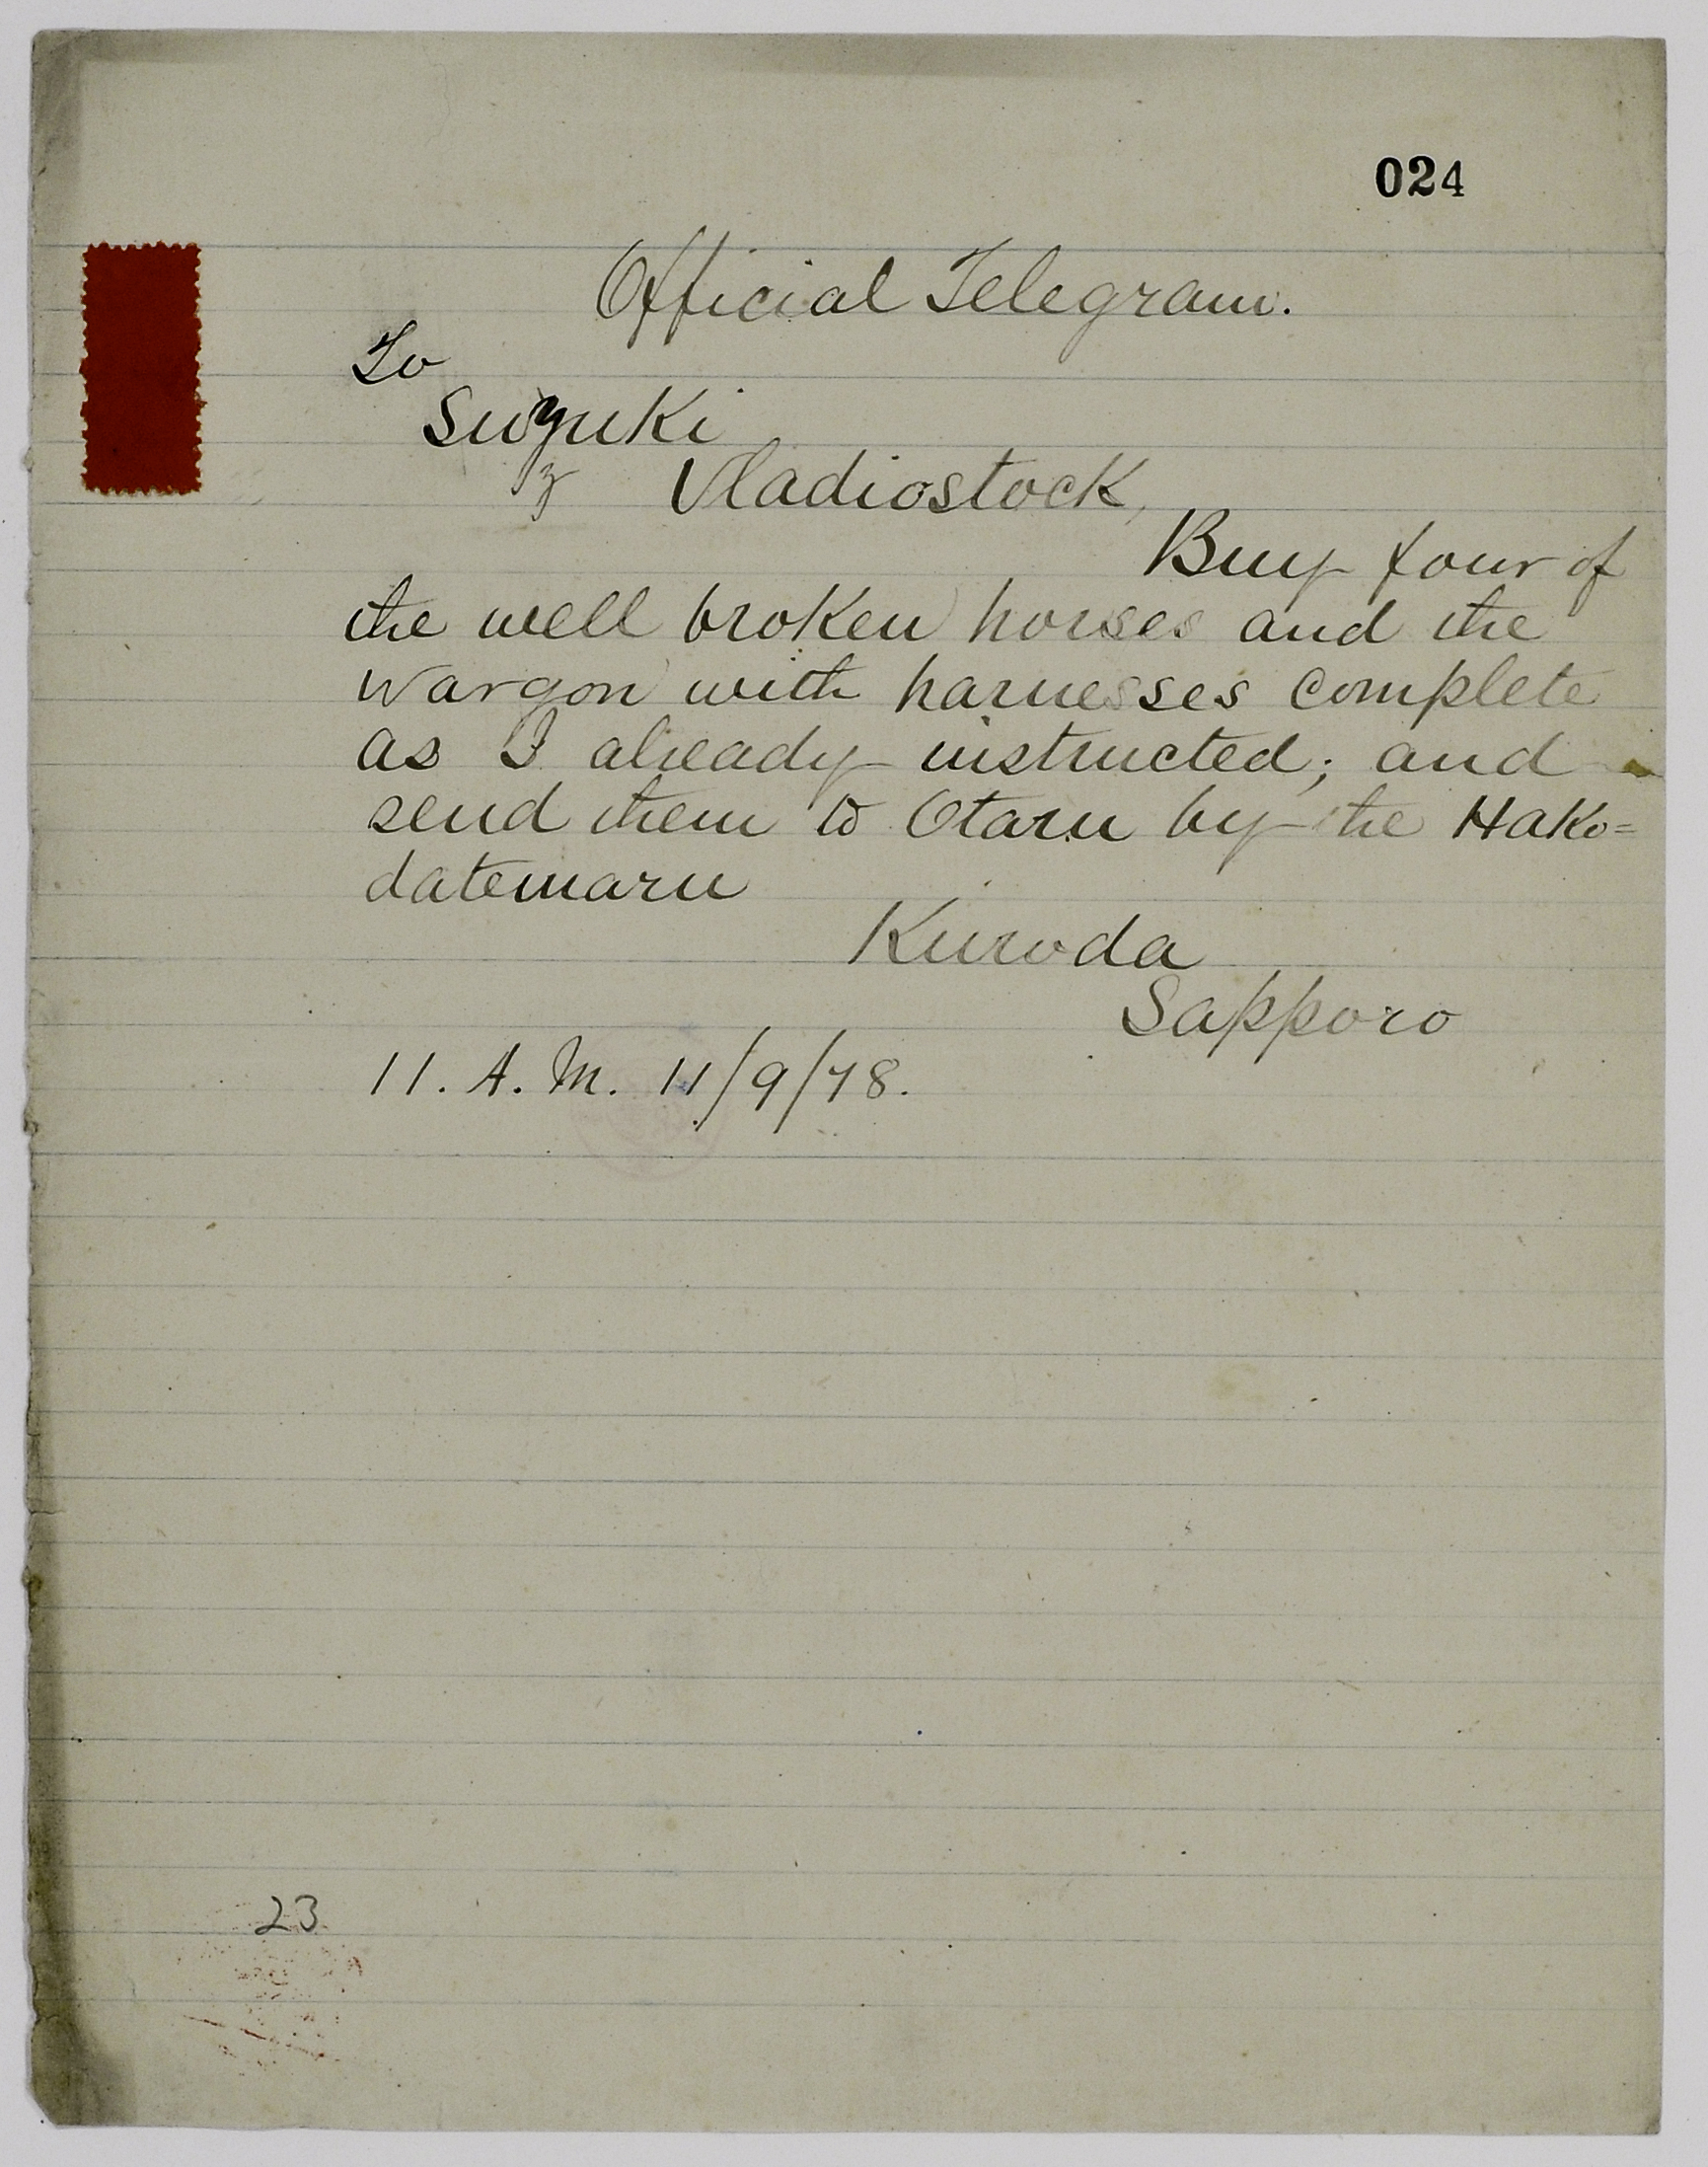 024
Official Telegram.
To
Suzuki
z
Vladiostock,
Buy four of
the well broken horses and the
wargon with harnesses complete
as I already instructed; and
send them to Otaru by the Hako=
datemaru
Kuroda
Sapporo
11. A. M. 11/9/78.
23